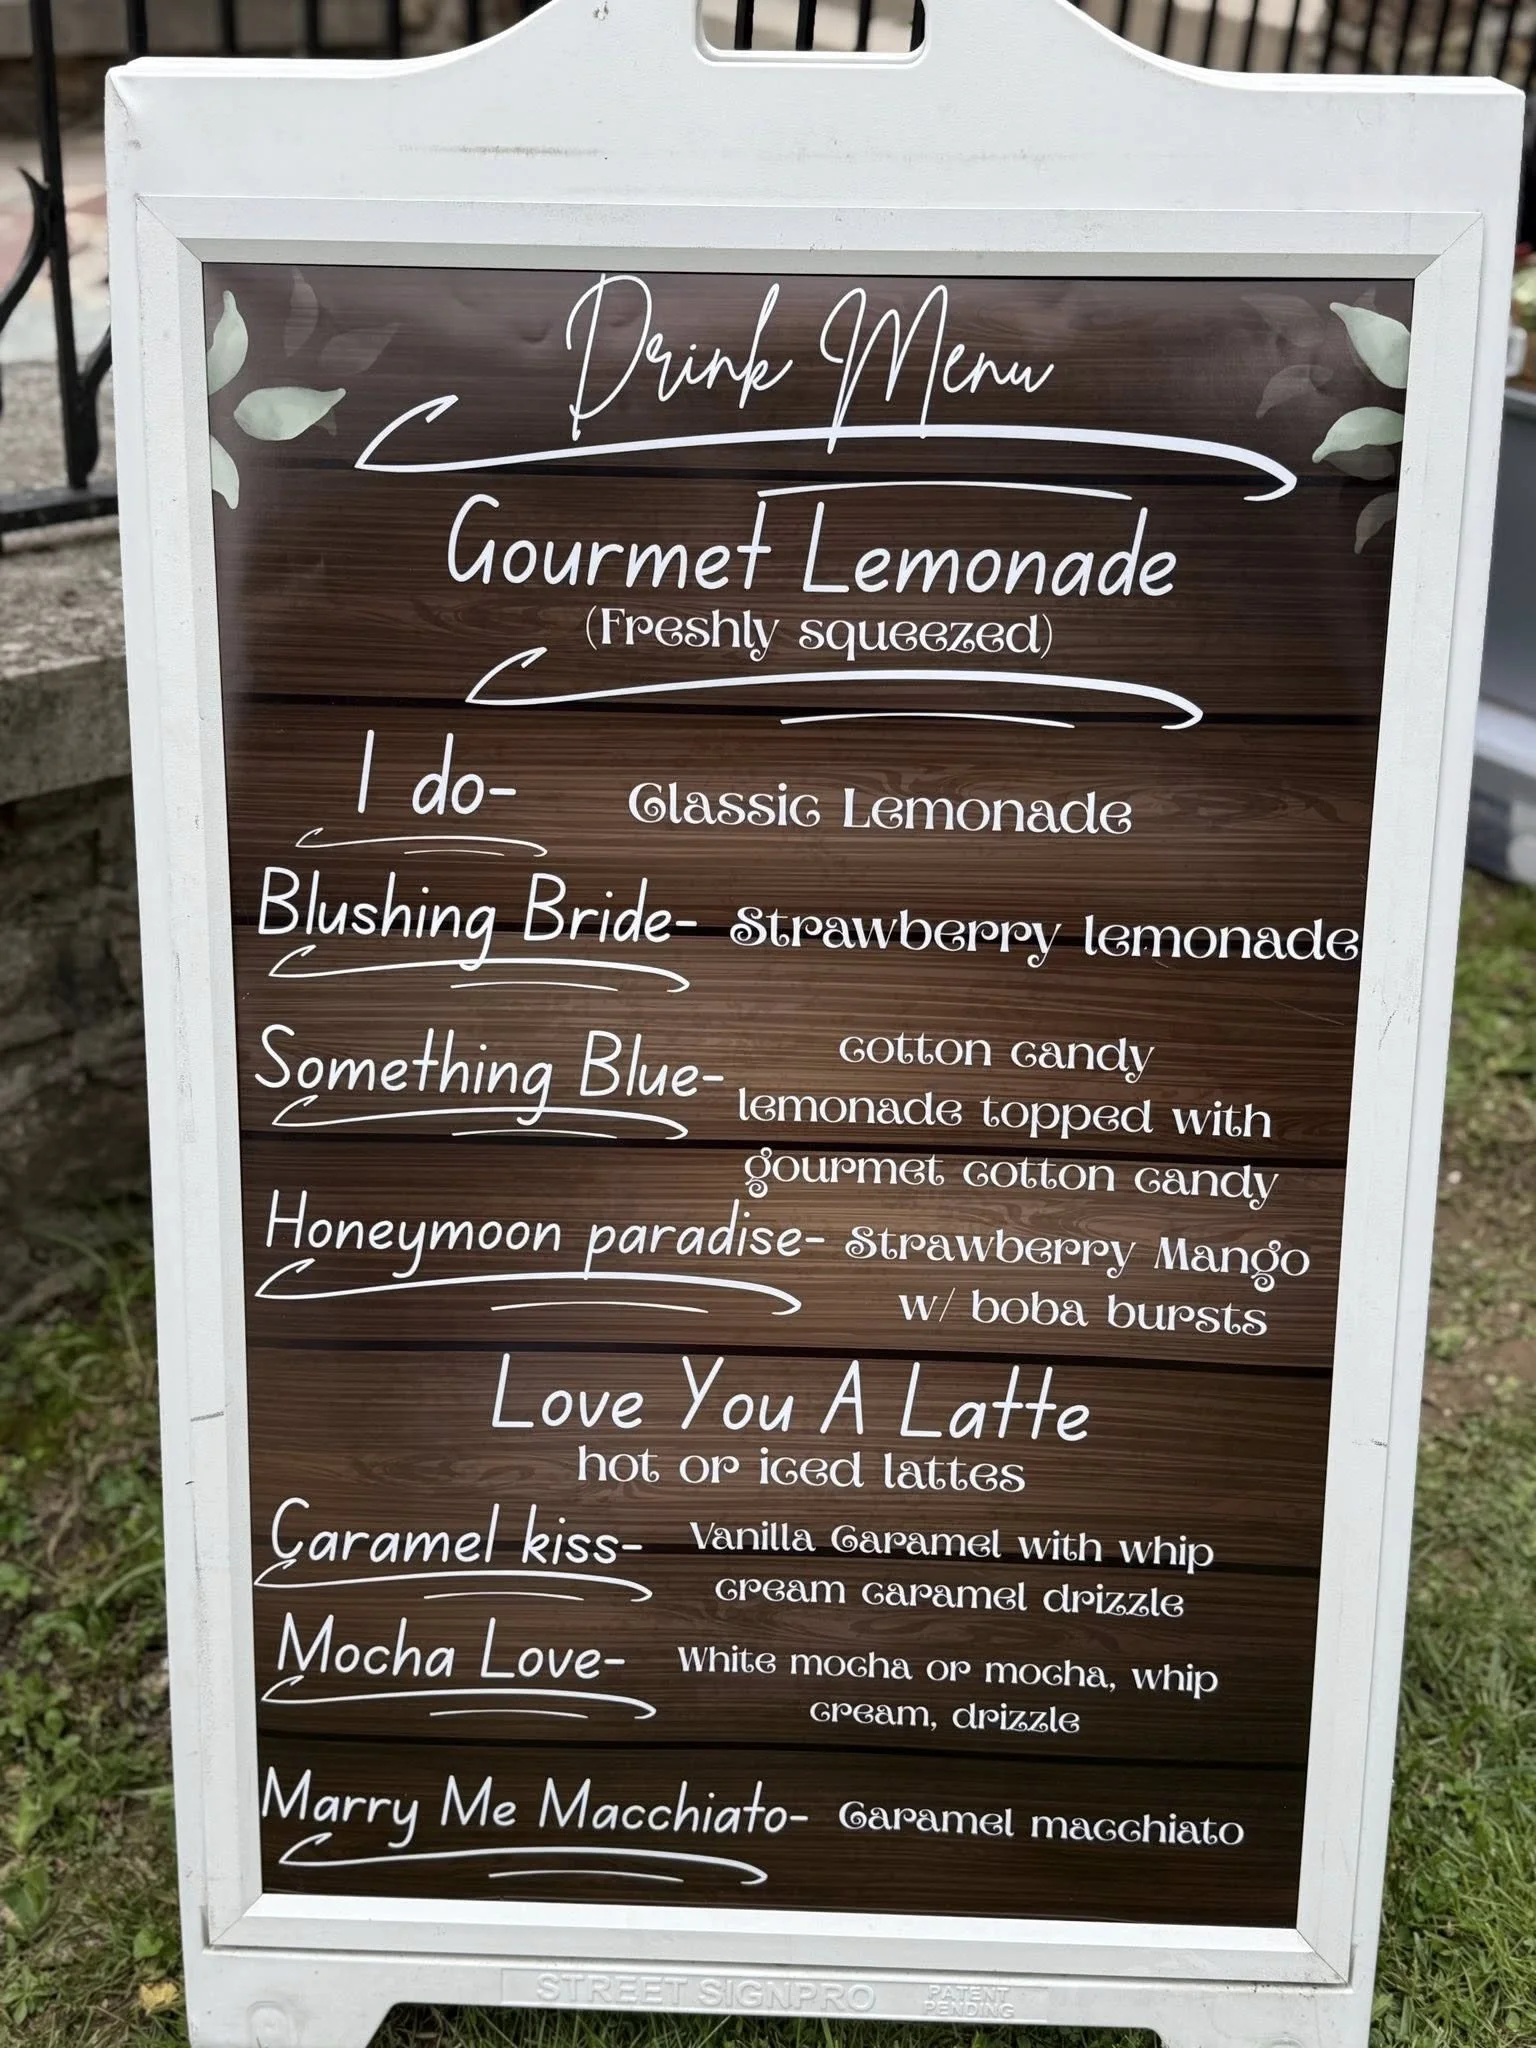 Drink Menu
Gourmet Lemonade
(Freshly squeezed)
I do- Classic Lemonade
Blushing Bride- Strawberry lemonade
Something Blue- cotton candy
lemonade topped with
gourmet cotton candy
Honeymoon paradise- Strawberry Mango
w/ boba bursts
Love You A Latte
hot or iced lattes
Caramel kiss- Vanilla Caramel with whip
cream caramel drizzle
Mocha Love- White mocha or mocha, whip
cream, drizzle
Marry Me Macchiato- Caramel macchiato
STREET SIGNPRO PATENT
PENDING